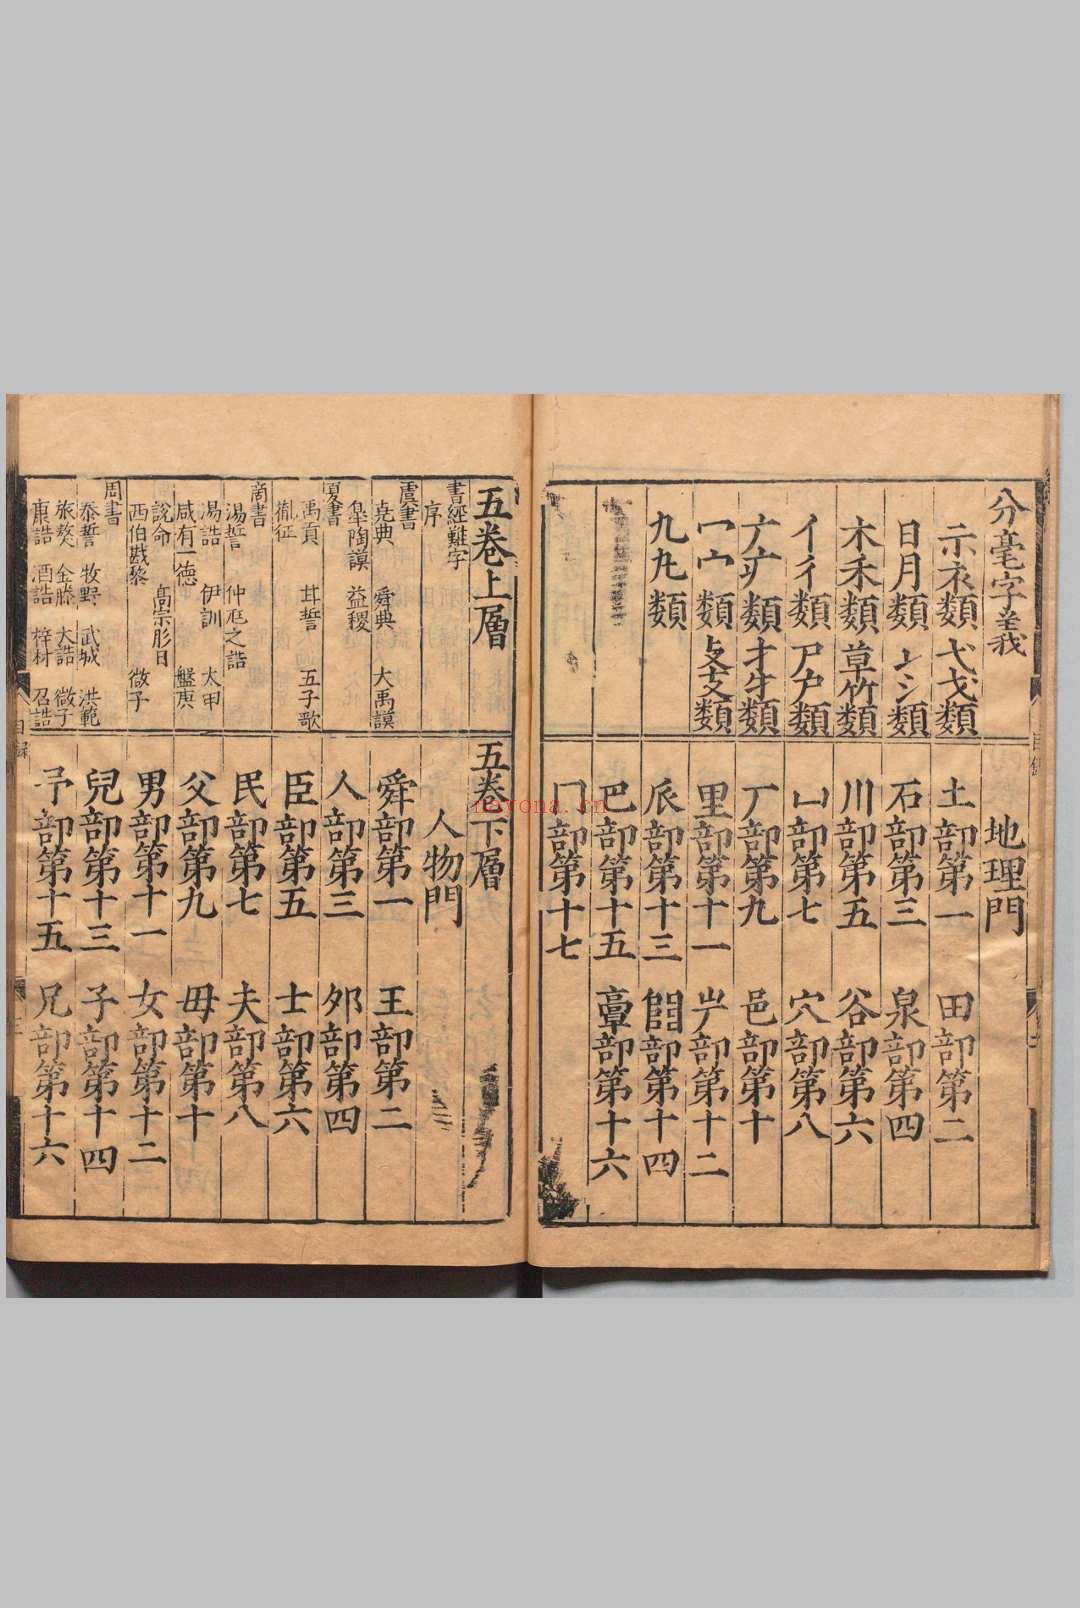 分毫字義
示衣類 弋戈類
日月類 冫氵類
木禾類 草竹類
亻彳類 尸户類
亠疒類 才牛類
冖宀類 殳支類
九類
地理門
土部第一 田部第二
石部三 泉部四
川部五 谷部六
凵部七 穴部八
厂部第九 邑部第十
里部第十一 屵部第十二
𠂢部第十三 部第十四
巴部第十五 𩫖部第十六
冂部第十七
五卷上層
書經難字
序
虞書
堯典 舜典 大禹謨
皐陶謨 益稷
夏書
禹貢 甘誓 五子歌
胤征
商書
湯誓 仲虺之誥
湯誥 伊訓 太甲
咸有一德 盤庚
說命 髙宗肜日
西伯戡黎 微子
周書
泰誓 牧野 武城 洪範
旅獒 金縢 大誥 微子
康誥 酒誥 梓材 召誥
五卷下層
人物門
舜部第一 王部第二
人部第三 部第四
臣部第五 士部第六
民部第七 夫部第八
父部第九 母部第十
男部第十一 女部第十二
兒部第十三 子部第十四
予部第十五 兄部第十六
目錄
nayona.cn